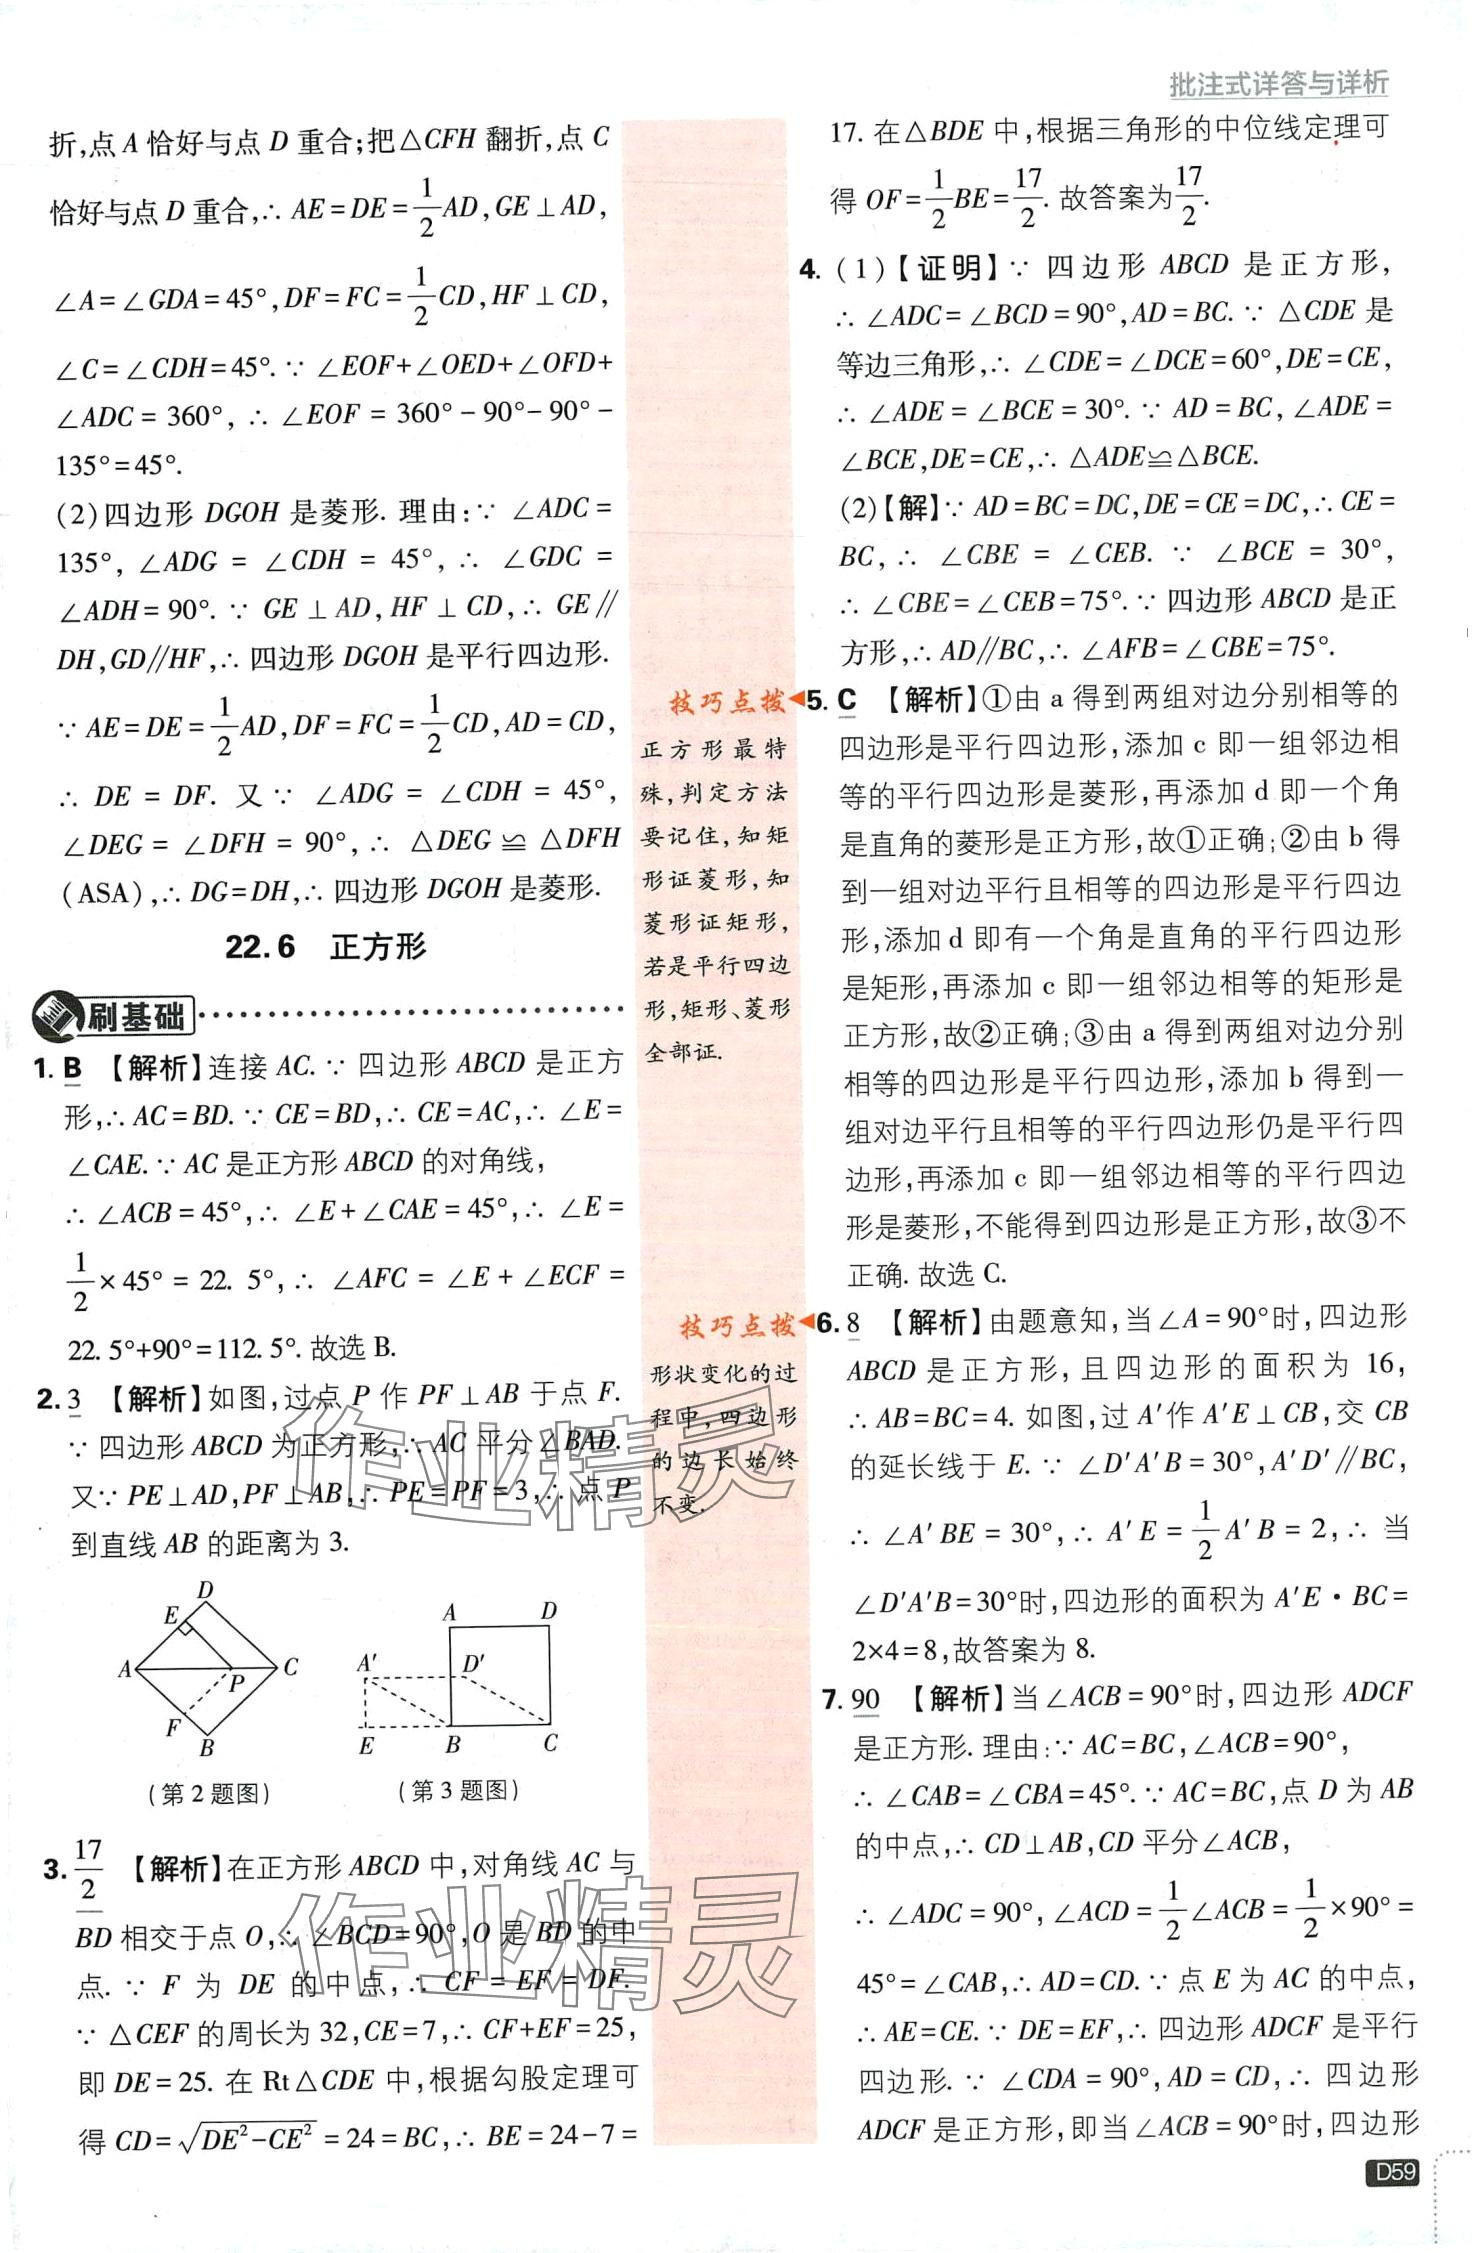 批注式详答与详析
折,点 A 恰好与点 D 重合;把△CFH 翻折,点 C
恰好与点 D 重合,∴ AE=DE=1/2AD,GE⊥AD,
∠A=∠GDA=45°,DF=FC=1/2CD,HF⊥CD,
∠C=∠CDH=45°.∵ ∠EOF+∠OED+∠OFD+
∠ADC=360°,∴ ∠EOF=360°-90°-90°-
135°=45°.
(2)四边形 DGOH 是菱形.理由:∵ ∠ADC=
135°,∠ADG=∠CDH=45°,∴ ∠GDC=
∠ADH=90°.∵ GE⊥AD,HF⊥CD,∴ GE∥
DH,GD∥HF,∴ 四边形 DGOH 是平行四边形.
∵ AE=DE=1/2AD,DF=FC=1/2CD,AD=CD,
∴ DE=DF.又∵ ∠ADG=∠CDH=45°,
∠DEG=∠DFH=90°,∴ △DEG≌△DFH
(ASA),∴ DG=DH,∴ 四边形 DGOH 是菱形.
22.6 正方形
刷基础
1. B 【解析】连接 AC.∵ 四边形 ABCD 是正方
形,∴ AC=BD.∵ CE=BD,∴ CE=AC,∴ ∠E=
∠CAE.∵ AC 是正方形 ABCD 的对角线,
∴ ∠ACB=45°,∴ ∠E+∠CAE=45°,∴ ∠E=
1/2×45°=22.5°,∴ ∠AFC=∠E+∠ECF=
22.5°+90°=112.5°.故选 B.
2. 3 【解析】如图,过点 P 作 PF⊥AB 于点 F.
∵ 四边形 ABCD 为正方形,∴ AC 平分∠BAD.
又∵ PE⊥AD,PF⊥AB,∴ PE=PF=3,∴ 点 P
到直线 AB 的距离为 3.
D
E
A
C
P
F
B
(第 2 题图)
A
D
A′
D′
E
B
C
(第 3 题图)
3. 17/2 【解析】在正方形 ABCD 中,对角线 AC 与
BD 相交于点 O,∴ ∠BCD=90°,O 是 BD 的中
点.∵ F 为 DE 的中点,∴ CF=EF=DF.
∵ △CEF 的周长为 32,CE=7,∴ CF+EF=25,
即 DE=25.在 Rt△CDE 中,根据勾股定理可
得 CD=√(DE²-CE²)=24=BC,∴ BE=24-7=
技巧点拨
正方形最特
殊,判定方法
要记住,知矩
形证菱形,知
菱形证矩形,
若是平行四边
形,矩形、菱形
全部证.
技巧点拨
形状变化的过
程中,四边形
的边长始终
不变.
17.在△BDE 中,根据三角形的中位线定理可
得 OF=1/2BE=17/2.故答案为17/2.
4. (1)【证明】∵ 四边形 ABCD 是正方形,
∴ ∠ADC=∠BCD=90°,AD=BC.∵ △CDE 是
等边三角形,∴ ∠CDE=∠DCE=60°,DE=CE,
∴ ∠ADE=∠BCE=30°.∵ AD=BC,∠ADE=
∠BCE,DE=CE,∴ △ADE≌△BCE.
(2)【解】∵ AD=BC=DC,DE=CE=DC,∴ CE=
BC,∴ ∠CBE=∠CEB.∵ ∠BCE=30°,
∴ ∠CBE=∠CEB=75°.∵ 四边形 ABCD 是正
方形,∴ AD∥BC,∴ ∠AFB=∠CBE=75°.
5. C 【解析】①由 a 得到两组对边分别相等的
四边形是平行四边形,添加 c 即一组邻边相
等的平行四边形是菱形,再添加 d 即一个角
是直角的菱形是正方形,故①正确;②由 b 得
到一组对边平行且相等的四边形是平行四边
形,添加 d 即有一个角是直角的平行四边形
是矩形,再添加 c 即一组邻边相等的矩形是
正方形,故②正确;③由 a 得到两组对边分别
相等的四边形是平行四边形,添加 b 得到一
组对边平行且相等的平行四边形仍是平行四
边形,再添加 c 即一组邻边相等的平行四边
形是菱形,不能得到四边形是正方形,故③不
正确.故选 C.
6. 8 【解析】由题意知,当∠A=90°时,四边形
ABCD 是正方形,且四边形的面积为 16,
∴ AB=BC=4.如图,过 A′作 A′E⊥CB,交 CB
的延长线于 E.∵ ∠D′A′B=30°,A′D′∥BC,
∴ ∠A′BE=30°,∴ A′E=1/2A′B=2,∴ 当
∠D′A′B=30°时,四边形的面积为 A′E·BC=
2×4=8,故答案为 8.
7. 90 【解析】当∠ACB=90°时,四边形 ADCF
是正方形.理由:∵ AC=BC,∠ACB=90°,
∴ ∠CAB=∠CBA=45°.∵ AC=BC,点 D 为 AB
的中点,∴ CD⊥AB,CD 平分∠ACB,
∴ ∠ADC=90°,∠ACD=1/2∠ACB=1/2×90°=
45°=∠CAB,∴ AD=CD.∵ 点 E 为 AC 的中点,
∴ AE=CE.∵ DE=EF,∴ 四边形 ADCF 是平行
四边形.∵ ∠CDA=90°,AD=CD,∴ 四边形
ADCF 是正方形,即当∠ACB=90°时,四边形
D59
作业精灵
作业精灵